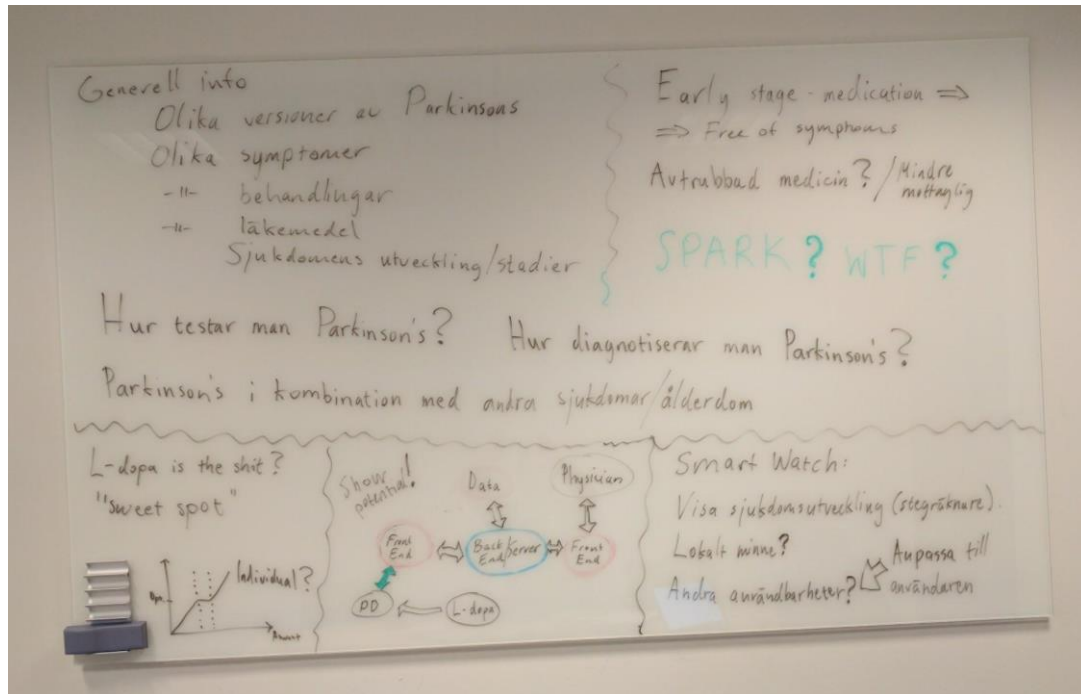 Generell info
Olika versioner av Parkinsons
Olika symptomer
-"- behandlingar
-"- läkemedel
Sjukdomens utveckling/stadier
Early stage - medication ⇒
⇒ Free of symphoms
Avtrubbad medicin? / Mindre
mottaglig
SPARK? WTF?
Hur testar man Parkinson's?
Hur diagnotiserar man Parkinson's?
Parkinson's i kombination med andra sjukdomar/ålderdom
L-dopa is the shit?
"sweet spot"
Individual?
Show
potential!
Data
Physician
Front
End
Back
End
Server
Front
End
PD
L-dopa
Smart Watch:
Visa sjukdomsutveckling (stegräknare).
Lokalt minne?
Andra användbarheter?
Anpassa till
användaren